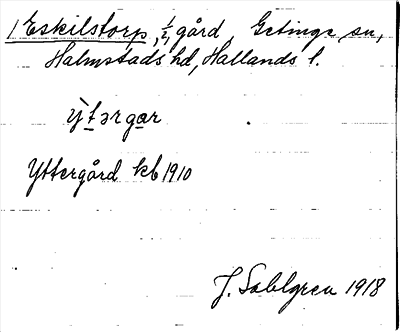 1 Eskilstorp, 1/2, gård, Getinge sn,
Halmstads hd, Hallands l.
ỳtərgar
Yttergård kb 1910
J. Sahlgren 1918